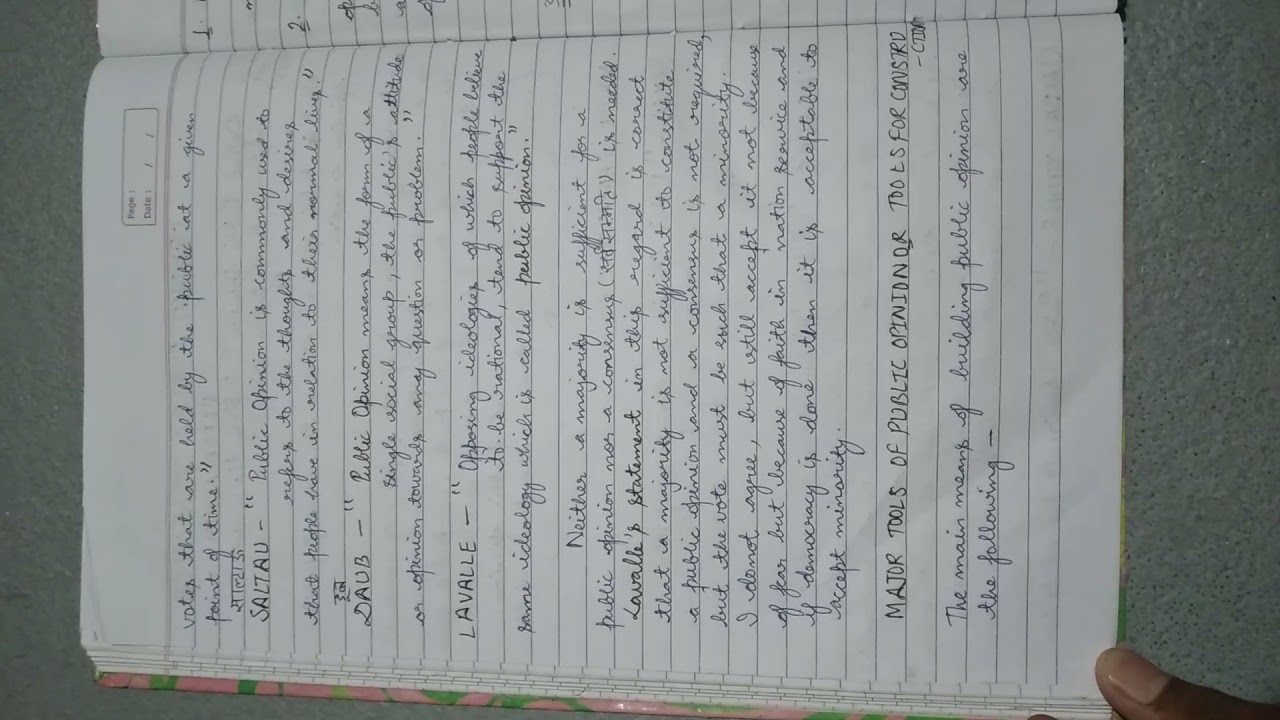 Page :
Date : / /
votes that are held by the public at a given
point of time."
साल्टाऊ
SALTAU - " Public Opinion is commonly used to
refers to the thoughts and desires
that people have in relation to their normal lives."
डूब
DAUB - " Public Opinion means the form of a
single social group, the public's attitude
or opinion towards any question or problem."
LAVALLE - " Opposing ideologies of which people believe
to be rational, tend to support the
same ideology which is called public opinion."
Neither a majority is sufficient for a
public opinion nor a consensus ( ) is needed.
Lavalle's statement in this regard is correct
that a majority is not sufficient to constitute
a public opinion and a consensus is not required,
but the vote must be such that a minority.
I donot agree, but still accept it not because
of fear but because of faith in nation service and
if democracy is done then it is acceptable to
accept minority.
MAJOR TOOLS OF PUBLIC OPINION OR TOOLS FOR CONSTRU
- CTION
The main means of building public opinion are
the following -
1.
2.